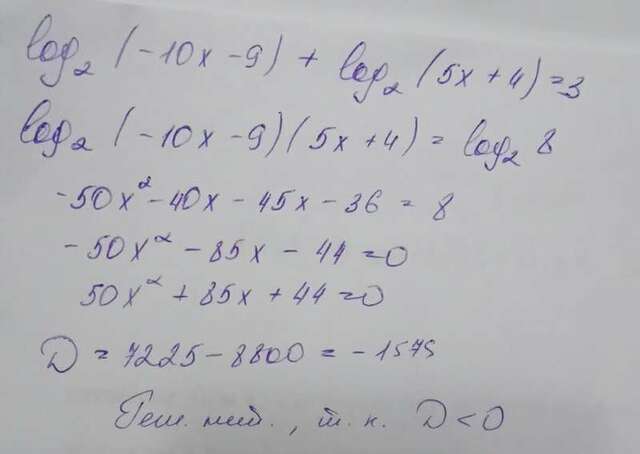 log₂ (-10x-9) + log₂ (5x+4)=3
log₂ (-10x-9)(5x+4) = log₂ 8
-50x² - 40x - 45x - 36 = 8
-50x² - 85x - 44 = 0
50x² + 85x + 44 = 0
D = 7225 - 8800 = -1575
Реш. нет., т.к. D < 0